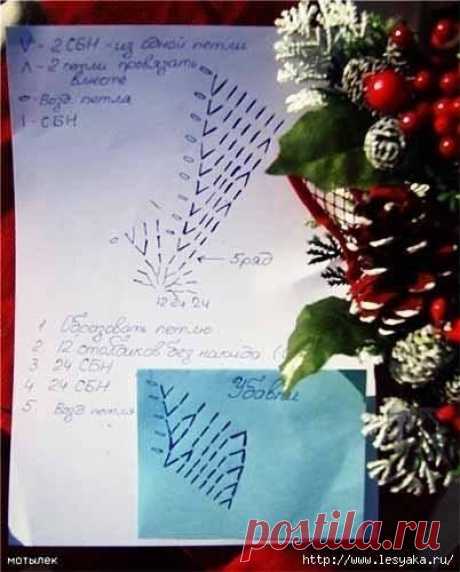 V - 2 СБН - из одной петли
Λ - 2 петли провязать
вместе
- Возд. петля
I - СБН
5 ряд
12 24 24
1 Образовать петлю
2 12 столбиков без накида
3 24 СБН
4 24 СБН
5 Возд петля
Убавки
мотылек
https://www.lesyaka.ru/
postila.ru